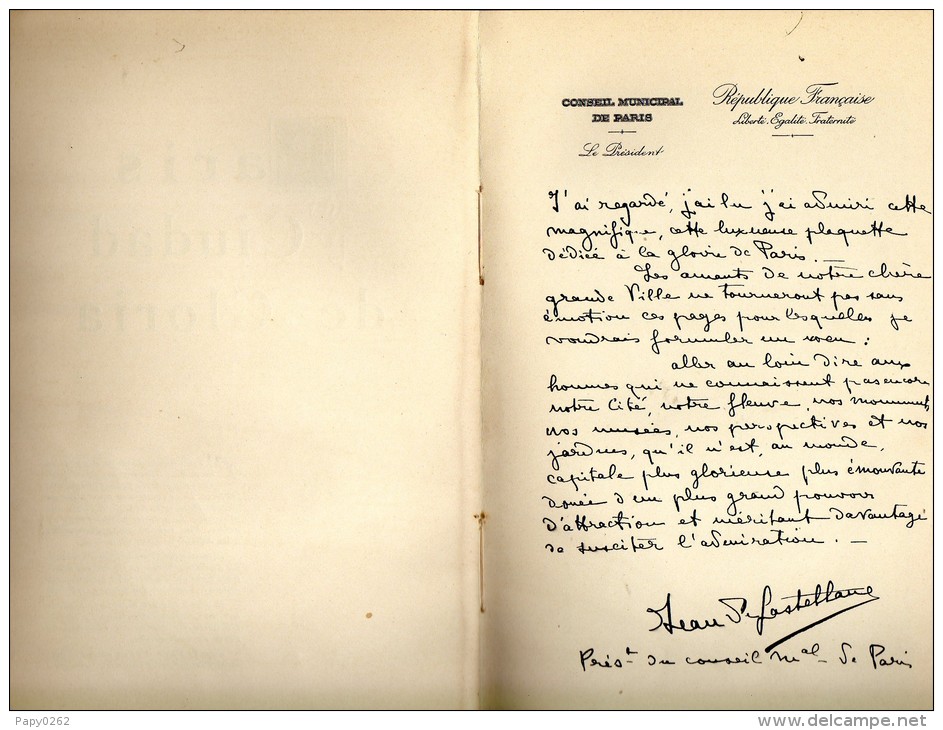 CONSEIL MUNICIPAL
DE PARIS
Le Président
République Française
Liberté. Egalité. Fraternité
J'ai regardé, j'ai lu j'ai admiré cette
magnifique, cette luxueuse plaquette
dédiée à la gloire de Paris. _
Les amants de notre chère
grande Ville ne tourneront pas sans
émotion ces pages pour lesquelles je
voudrais formuler un voeu :
aller au loin dire aux
hommes qui ne connaissent pas encore
notre Cité, notre fleuve, nos monuments
nos musées, nos perspectives et nos
jardins, qu'il n'est, au monde,
capitale plus glorieuse plus émouvante
douée d'un plus grand pouvoir
d'attraction et méritant davantage
de susciter l'admiration. _
Jean de Castellane
Prést du conseil mal de Paris
Papy0262
www.delcampe.net